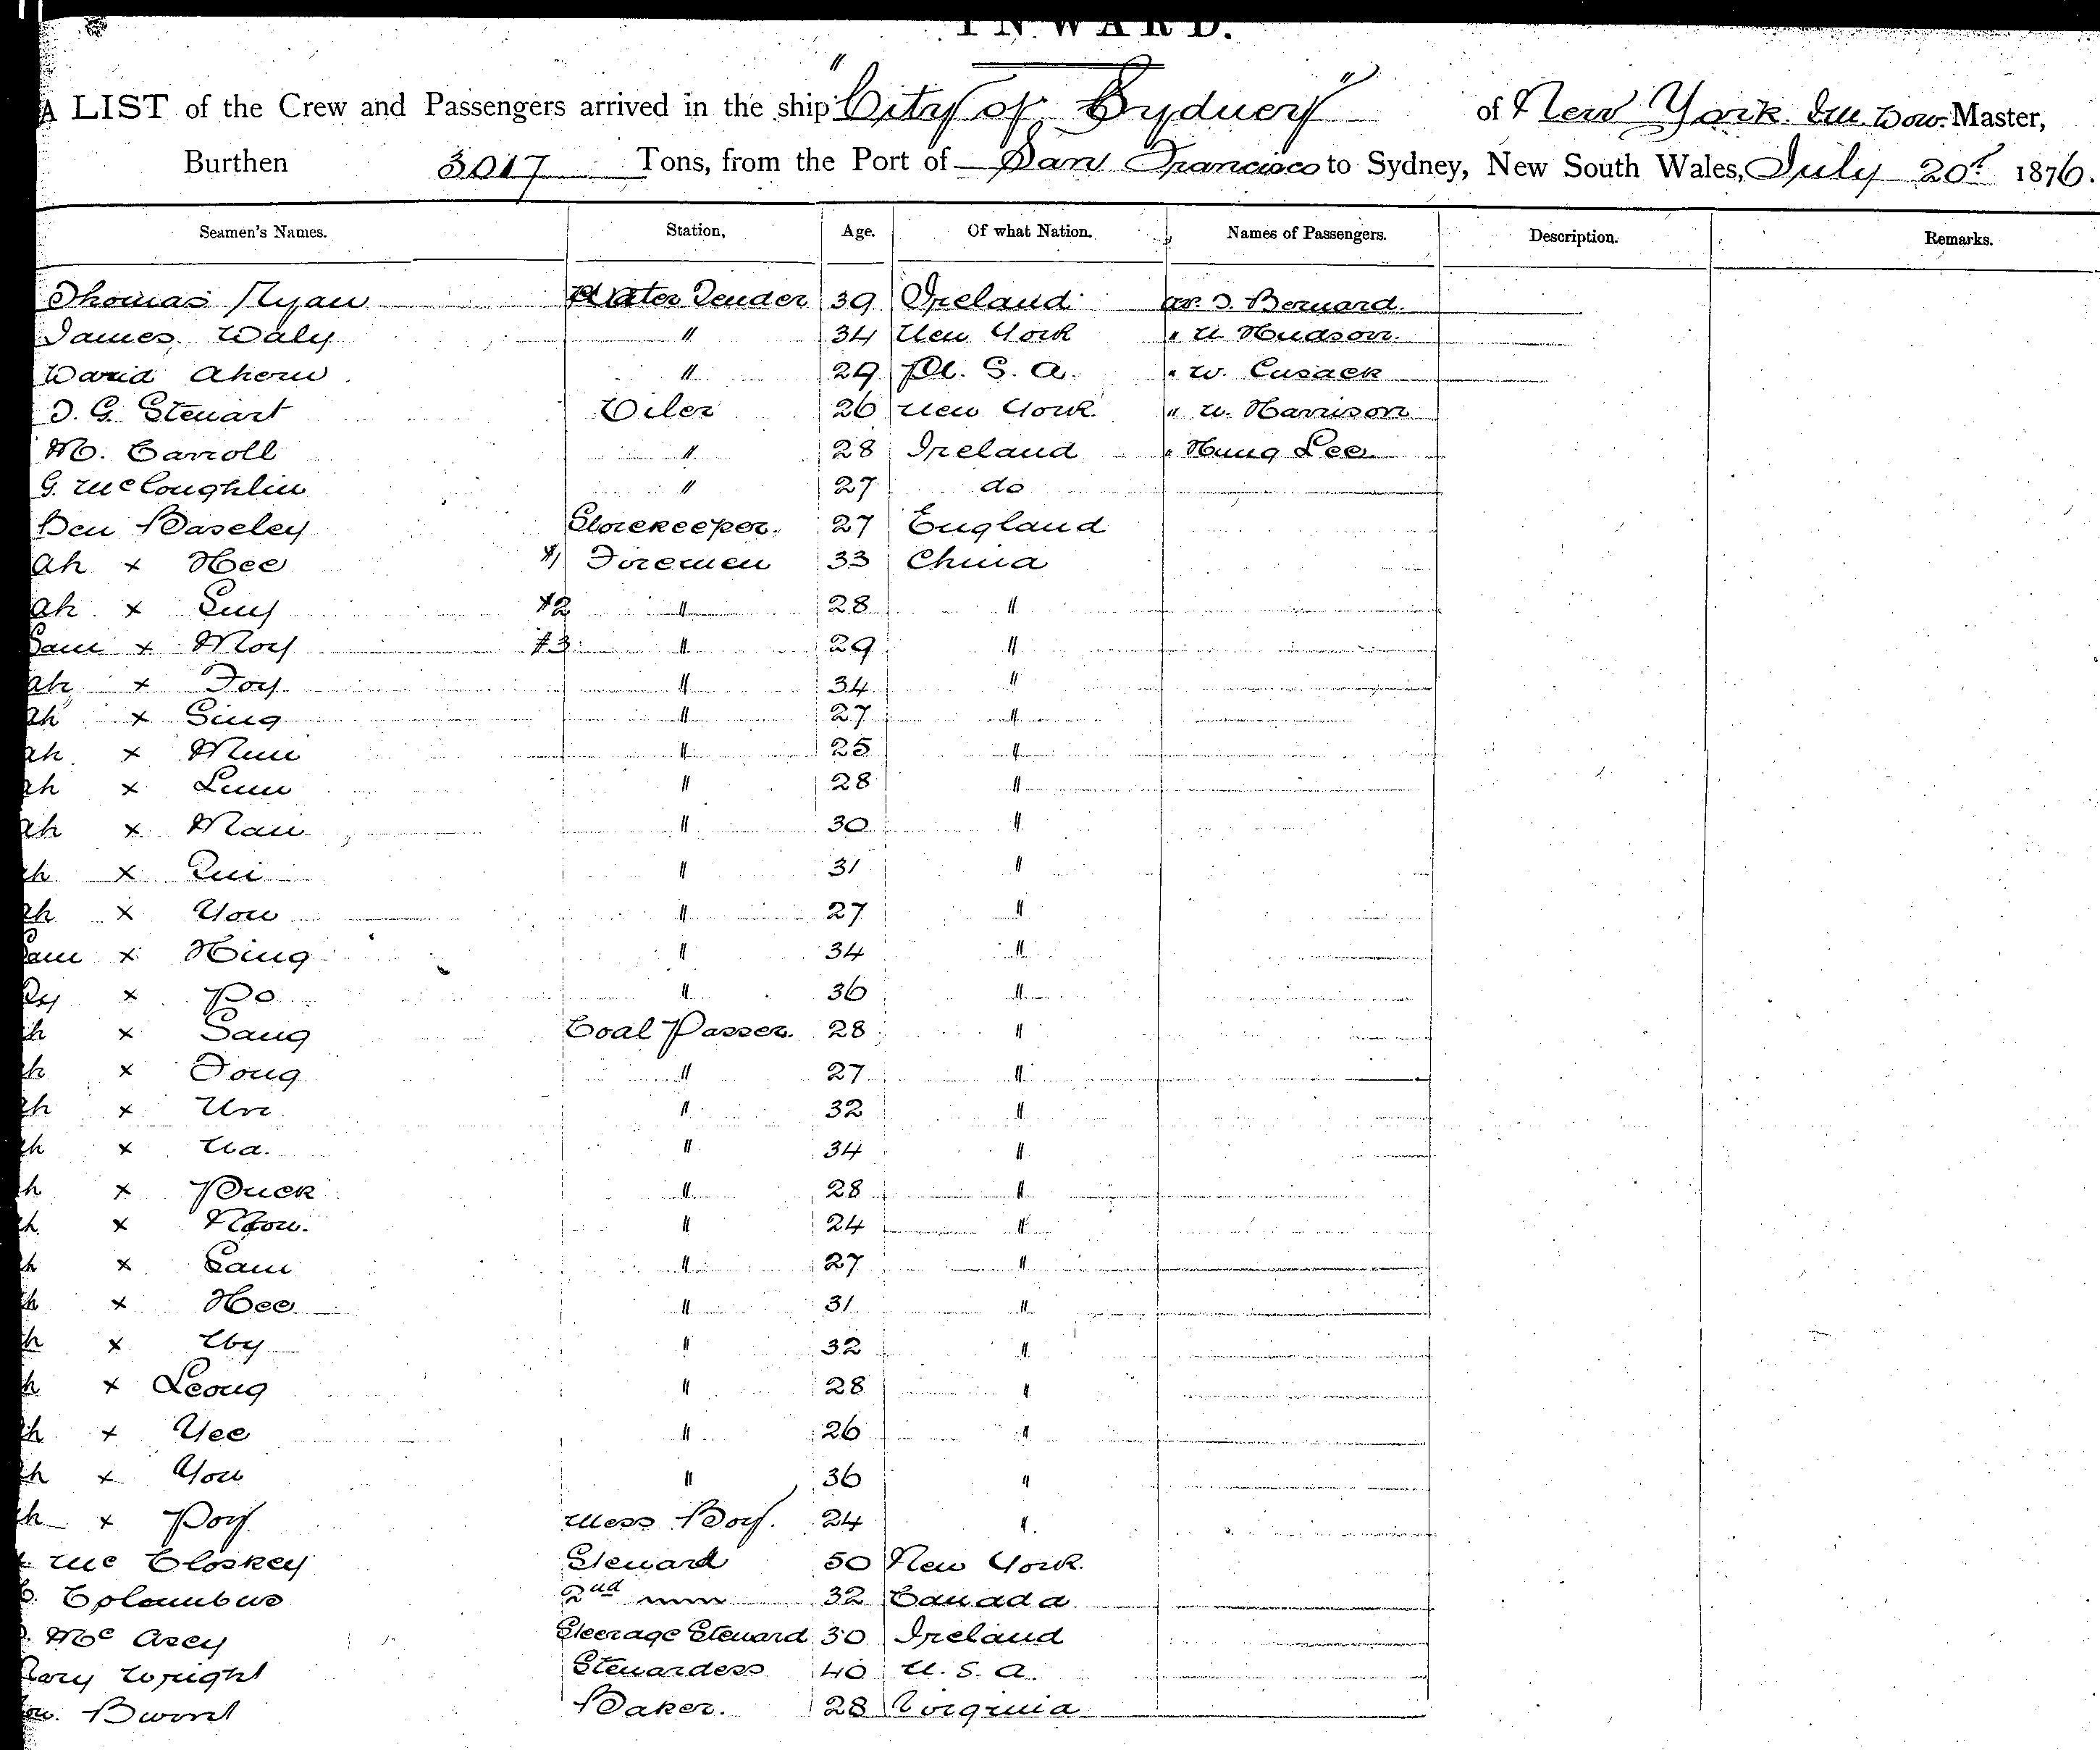 INWARD.
A LIST of the Crew and Passengers arrived in the ship "City of Sydney" of New York Dow. Master,
Burthen 3017 Tons, from the Port of San Francisco to Sydney, New South Wales, July 20t 1876.
Seamen's Names. Station, Age. Of what Nation. Names of Passengers. Description. Remarks.
Thomas Ryan Water Tender 39 Ireland J. Bernard.
James Daly " 34 New York " Hudson.
David Ahern " 29 U. S. A. " W. Cusack
J. G. Stewart Oiler 26 New York " W. Harrison
M. Carroll " 28 Ireland " Hung Lee
G. McLoughlin " 27 do
Ben Baseley Storekeeper. 27 England
Ah x Hee #1 Firemen 33 China
Ah x Suy #2 " 28 "
Sam x Moy #3 " 29 "
Ah x Foy " 34 "
Ah x Sing " 27 "
Ah x Mun " 25 "
Ah x Lum " 28 "
Ah x Man " 30 "
Ah x Qui " 31 "
Ah x You " 27 "
Sam x Hing " 34 "
x Po " 36 "
Ah x Sang Coal Passer. 28 "
Ah x Fong " 27 "
Ah x " 32 "
Ah x Na. " 34 "
Ah x Puck " 28 "
Ah x " 24 "
Ah x Sam " 27 "
Ah x Hee " 31 "
Ah x " 32 "
Ah x Leong " 28 "
Ah x Yee " 26 "
Ah x You " 36 "
Ah x Poy Mess Boy. 24 "
Mc Closkey Steward 50 New York.
C. Columbus 2nd 32 Canada
Mc Arey Steerage Steward 30 Ireland
Mary Wright Stewardess 40 U. S. A.
Baker. 28 Virginia